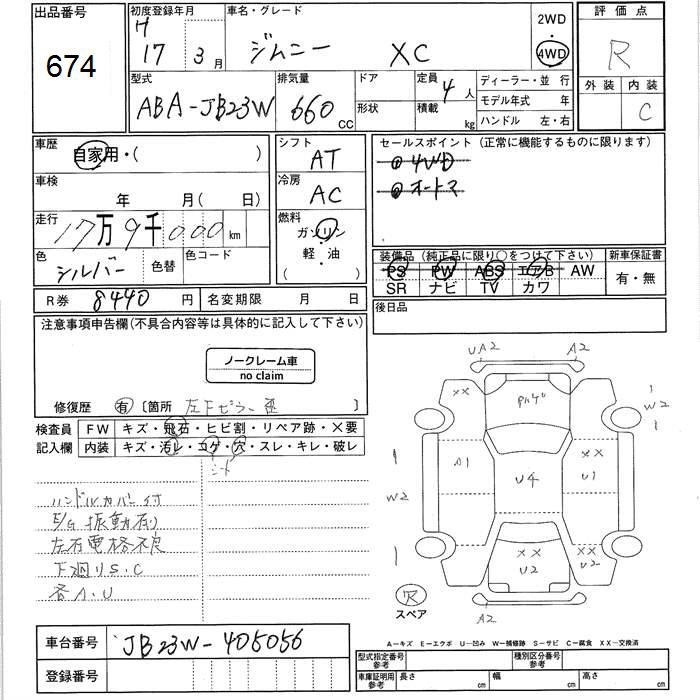 出品番号
674
初度登録年月
H
17 3月
車名・グレード
ジムニー XC
2WD
4WD
評価点
R
外装 内装
C
型式
ABA-JB23W
排気量
660
CC
ドア
形状
定員 4 人
積載 kg
ディーラー・並 行
モデル年式 年
ハンドル 左・右
車歴
自家用・( )
車検
年 月( 日)
走行
17万9千000 km
色
シルバー
色替
色コード
シフト
AT
冷房
AC
燃料
ガソリン
軽・油
セールスポイント (正常に機能するものに限ります)
4WD
オートマ
装備品 (純正品に限り○をつけて下さい)
PS PW ABS エアB AW
SR ナビ TV カワ
新車保証書
有・無
R券 8440 円
名変期限 月 日
後日品
注意事項申告欄(不具合内容等は具体的に記入して下さい)
ノークレーム車
no claim
修復歴 有 〔箇所 左Fピラー 〕
検査員
記入欄
FW キズ・飛石・ヒビ割・リペア跡・×要
内装 キズ・汚レ・コゲ・穴・スレ・キレ・破レ
シート
ハンドルカバー付
E/G振動有
左右電格不良
下廻りS.C
各A.U
UA2 A2
XX
W2
A1
U4
XX
U1
W2
XX
U2
XX
U2
A2
スペア
A-キズ E-エクボ U-凹み W-補修跡 S-サビ C-腐食 XX-交換済
車台番号 JB23W-405056
登録番号
型式指定番号
参考
種別区分番号
参考
車庫証明用
参考
長さ cm 幅 cm 高さ cm